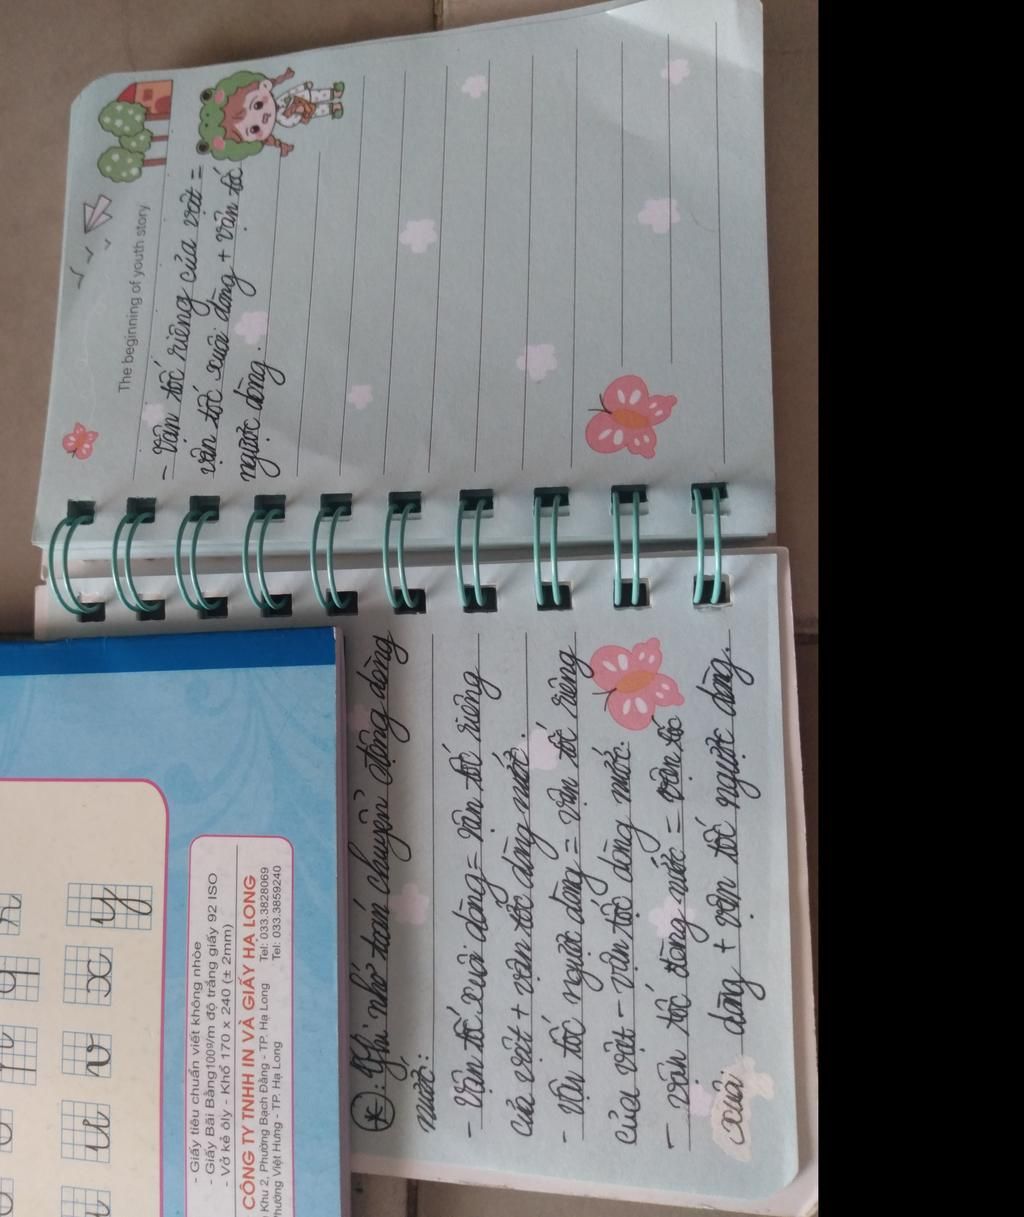 ⊛: Ghi nhớ toán chuyển động dòng
nước:
- Vận tốc xuôi dòng = vận tốc riêng
của vật + vận tốc dòng nước.
- Vận tốc ngược dòng = vận tốc riêng
của vật - vận tốc dòng nước.
- vận tốc dòng nước = vận tốc
xuôi dòng + vận tốc ngược dòng.
The beginning of youth story
- Vận tốc riêng của vật =
vận tốc xuôi dòng + vận tốc
ngược dòng.
u v x y
- Giấy tiêu chuẩn viết không nhòe
- Giấy Bãi Bằng 100g/m độ trắng giấy 92 ISO
- Vở kẻ ôly - Khổ 170 x 240 (± 2mm)
CÔNG TY TNHH IN VÀ GIẤY HẠ LONG
Khu 2, Phường Bạch Đằng - TP. Hạ Long Tel: 033.3828069
Phường Việt Hưng - TP. Hạ Long Tel: 033.3859240